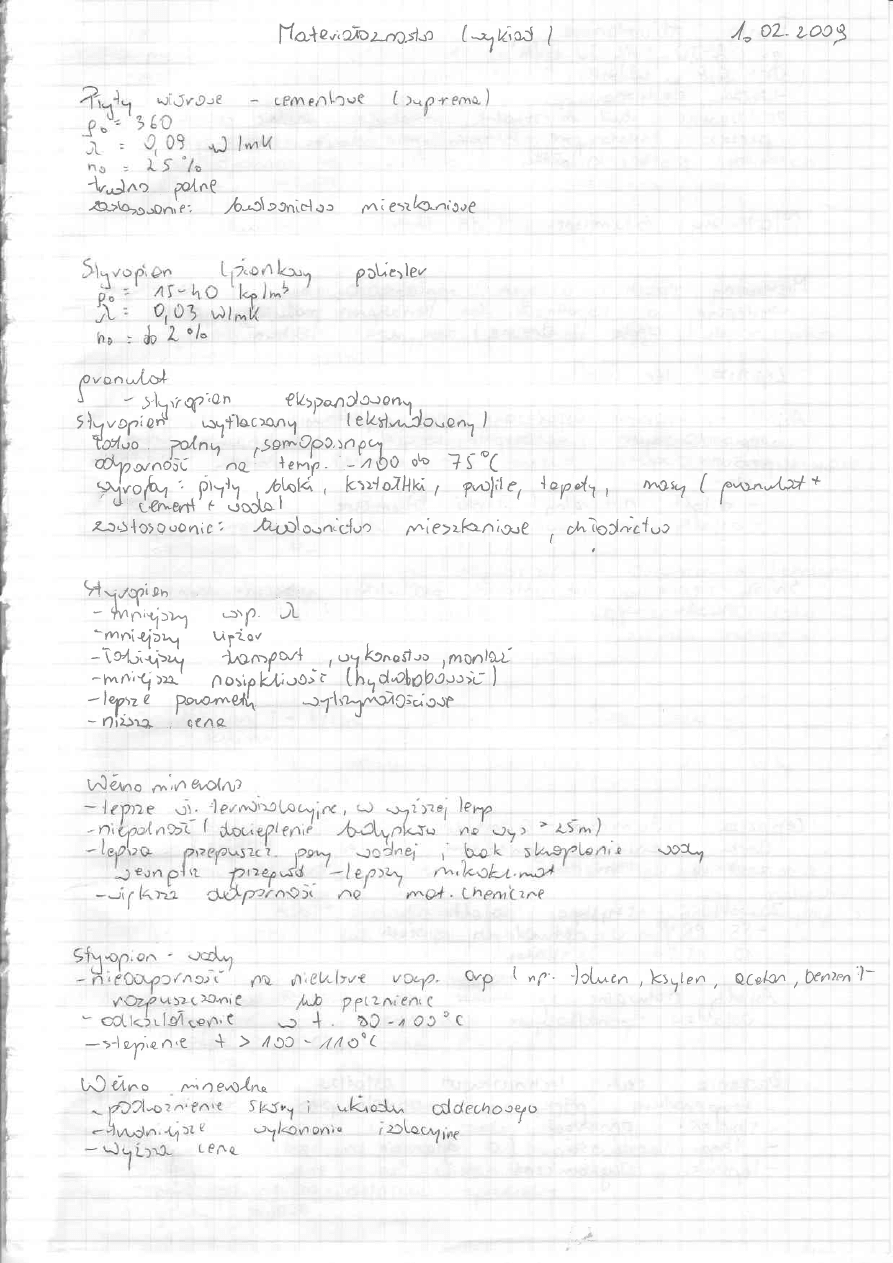 Materiałoznastwo (wykład) 1. 02. 2009
Płyty wiórowe - cementowe (suprema)
ρo = 360
λ = 0,09 W/mK
no = 25%
trudno palne
zastosowanie: budownictwo mieszkaniowe
Styropian (piankowy poliester
ρo = 15-40 kg/m³
λ = 0,03 W/mK
no = do 2%
granulat
- styropian ekspandowany
styropian wytłaczany (ekstrudowany)
łatwo palny, samogasnący
odporność na temp. -100 do 75°C
wyroby: płyty, bloki, kształtki, profile, tapety, masy (granulat +
cement + woda)
zastosowanie: budownictwo mieszkaniowe, chłodnictwo
Styropian
- mniejszy wsp. λ
- mniejszy ciężar
- łatwiejszy transport, wykonastwo, montaż
- mniejsza nasiąkliwość (hydrofobowość)
- lepsze parametry wytrzymałościowe
- niższa cena
Wełna mineralna
- lepsze wł. termoizolacyjne, w wyższej temp
- niepalność (docieplenie budynków na wys > 25m)
- lepsza przepuszcz. pary wodnej i brak skroplenia wody
wewnątrz przegrod - lepszy mikroklimat
- większa odporność na mat. chemiczne
Styropian - wady
- nieodporność na niektóre rozp. org (np. toluen, ksylen, aceton, benzen) -
rozpuszczanie lub pęcznienie
- odkształcenie w t. 80-100°C
- stopienie t > 100 - 110°C
Wełna mineralna
- podrażnienie skóry i układu oddechowego
- trudniejsze wykonanie izolacyjne
- wyższa cena